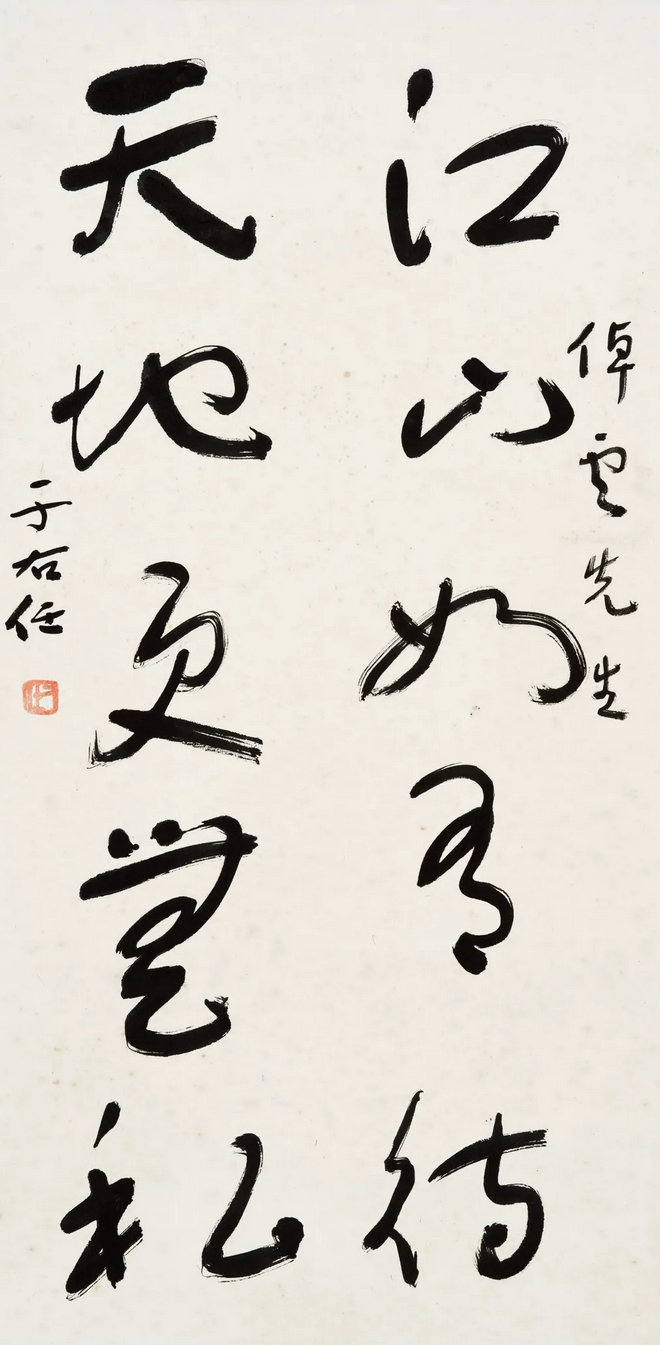 江山如有待
倬云先生
天地更無私
于右任